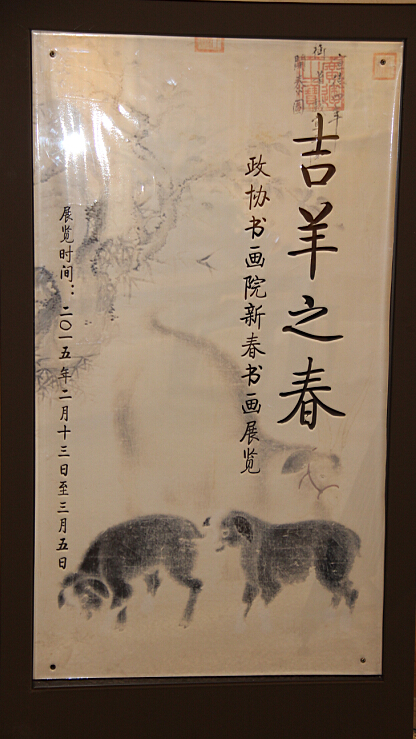 吉羊之春
政协书画院新春书画展览
展览时间：二〇一五年二月十三日至三月五日